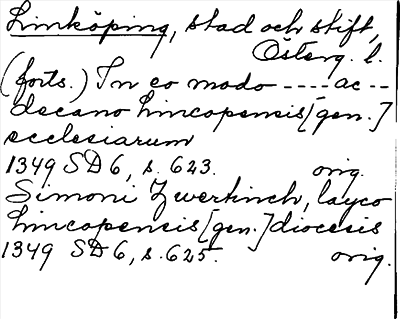 Linköping, stad och stift,
Österg. l.
(forts.) In eo modo ---- ac --
decano lincopensis [gen.]
ecclesiarum
1349 SD 6, s. 623. orig.
Simoni Zwerkinch, layco
lincopensis [gen.] diocesis
1349 SD 6, s. 625. orig.